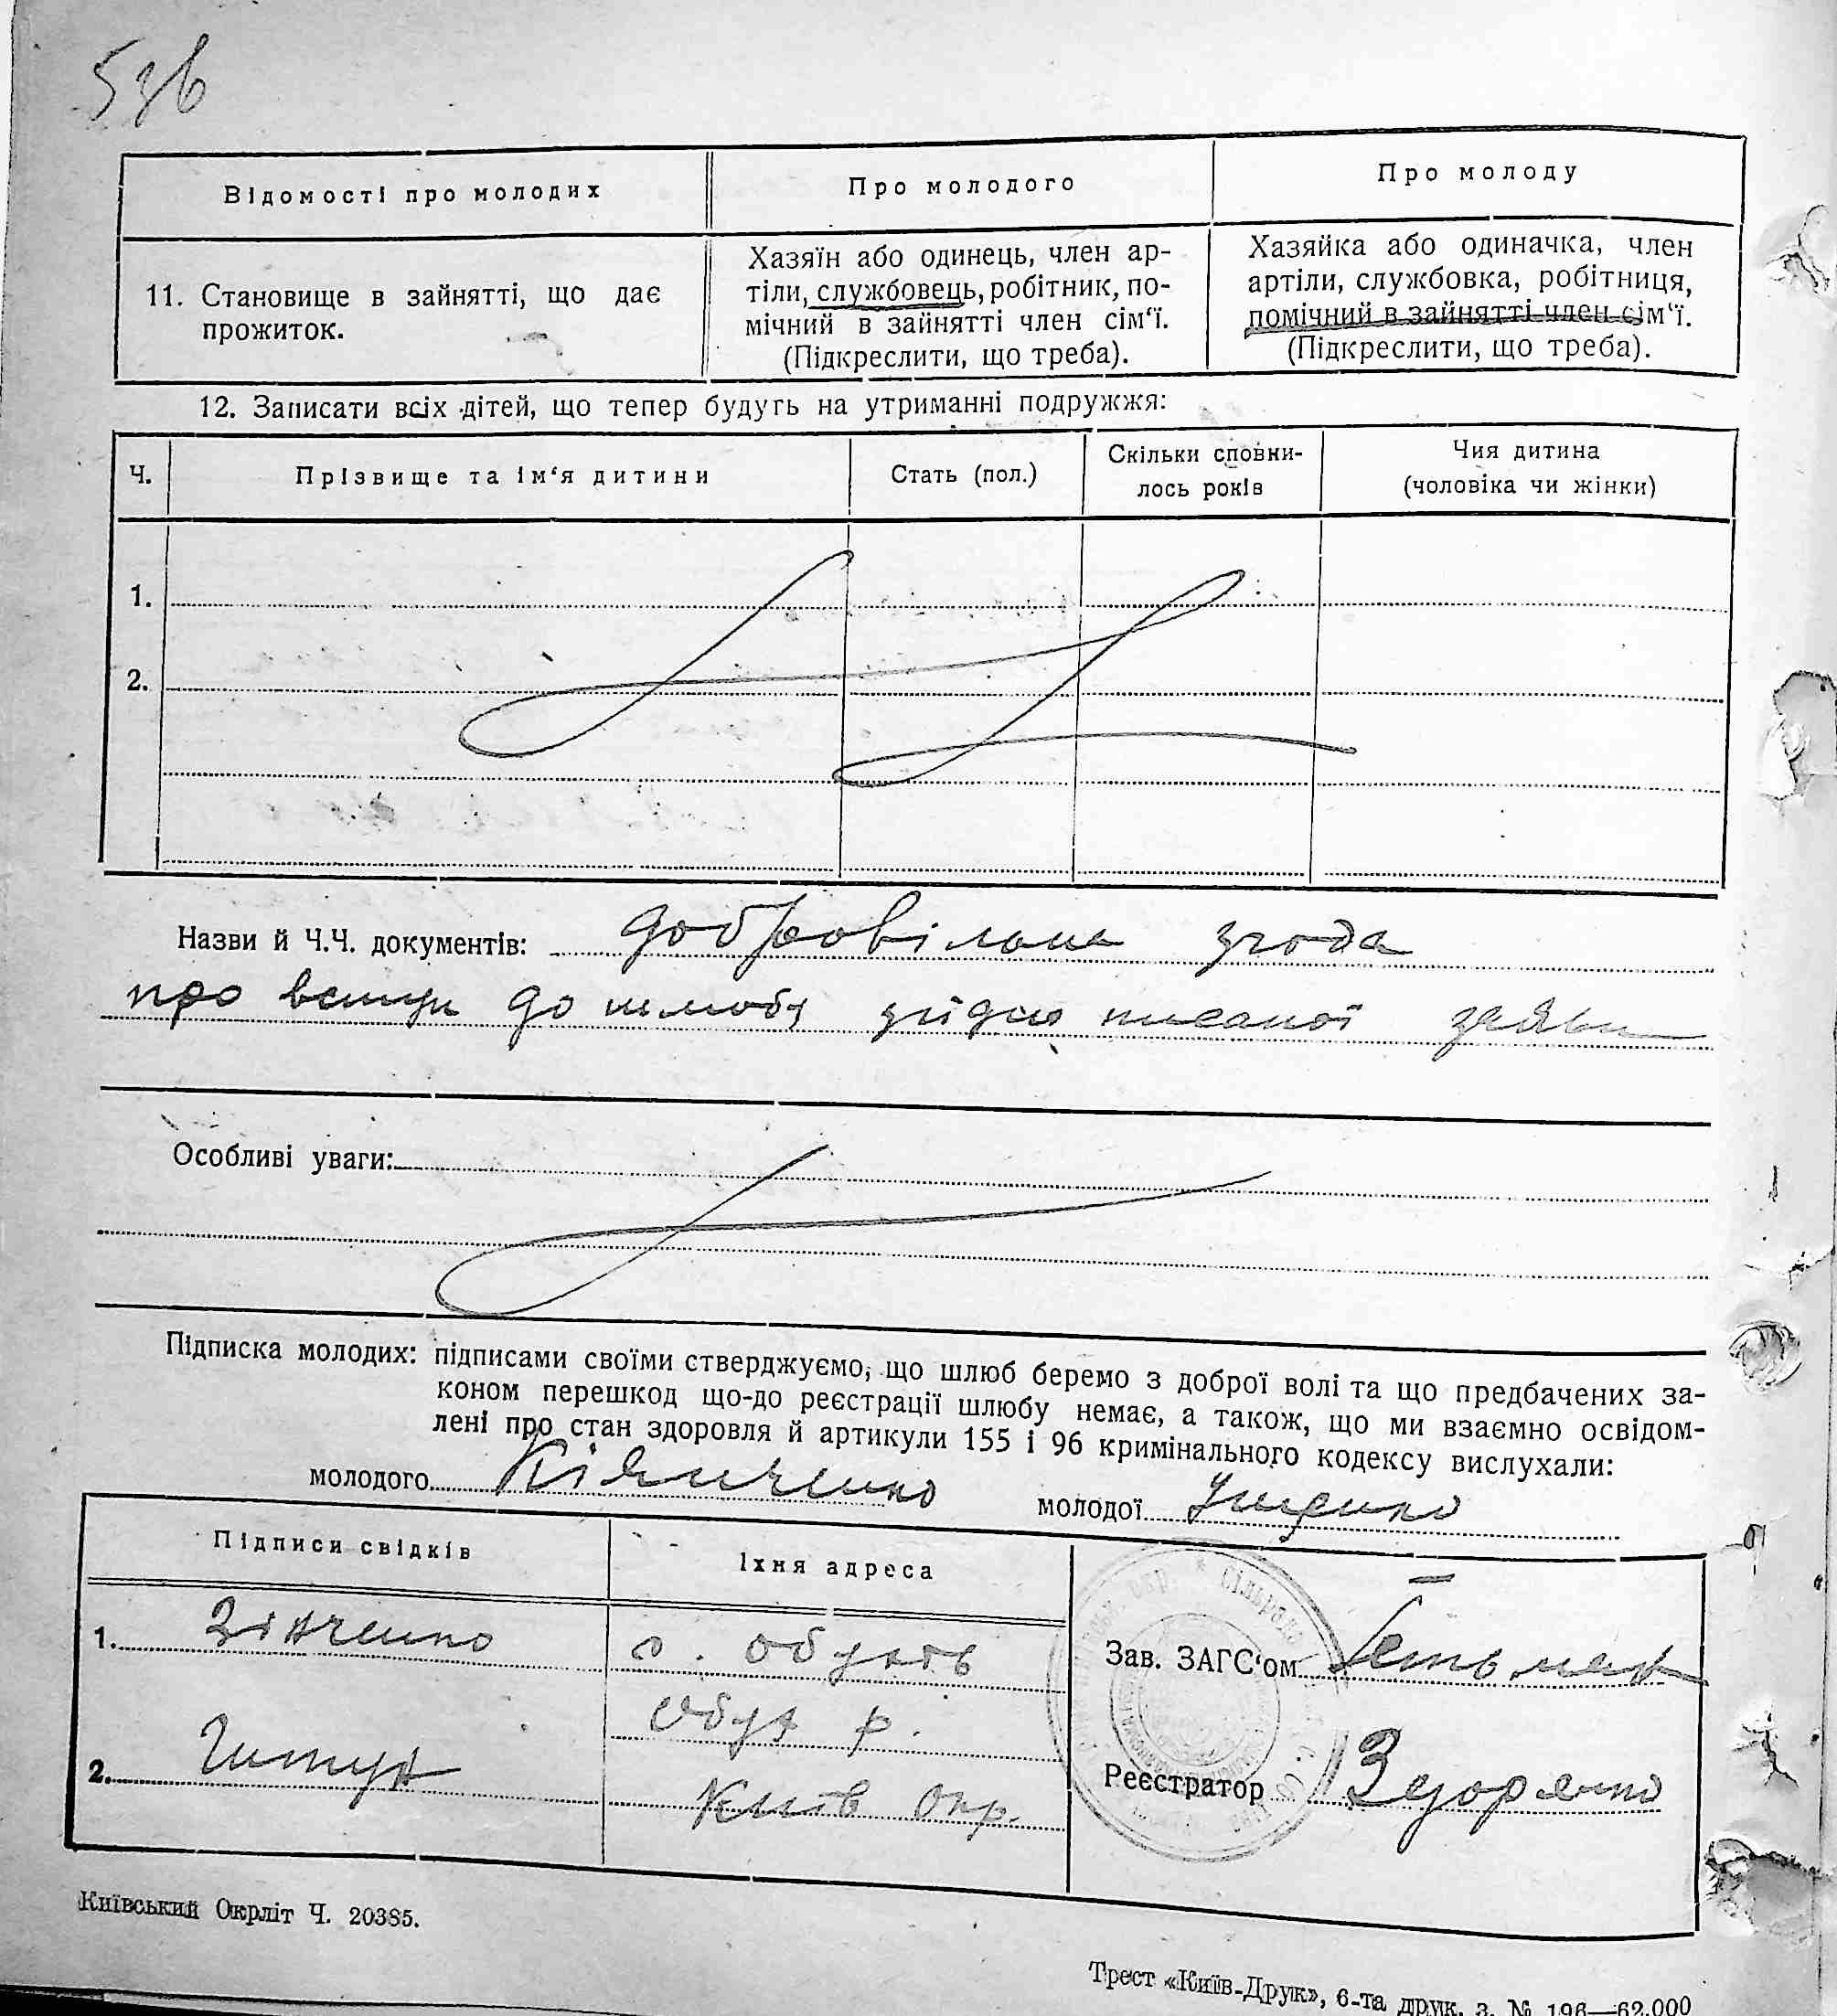 Відомості про молодих
Про молодого
Про молоду
11. Становище в зайнятті, що дає
прожиток.
Хазяїн або одинець, член ар-
тіли, службовець, робітник, по-
мічний в зайнятті член сім‘ї.
(Підкреслити, що треба).
Хазяйка або одиначка, член
артіли, службовка, робітниця,
помічний в зайнятті член сім‘ї.
(Підкреслити, що треба).
12. Записати всіх дітей, що тепер будуть на утриманні подружжя:
Ч.
Прізвище та ім‘я дитини
Стать (пол.)
Скільки сповни-
лось років
Чия дитина
(чоловіка чи жінки)
1.
2.
Назви й Ч.Ч. документів: добровільна згода
про вступ до шлюбу згідно писаної заяви
Особливі уваги:
Підписка молодих: підписами своїми стверджуємо, що шлюб беремо з доброї волі та що предбачених за-
коном перешкод що-до реєстрації шлюбу немає, а також, що ми взаємно освідом-
лені про стан здоровля й артикули 155 і 96 кримінального кодексу вислухали:
молодого
молодої
Підписи свідків
Їхня адреса
1. Зінченко
с. Обухів
Обух р.
2.
Київ Окр.
Зав. ЗАГС‘ом Гетьман
Реєстратор
Київський Окрліт Ч. 20385.
Трест «Київ-Друк», 6-та друк. з. № 196—62.000